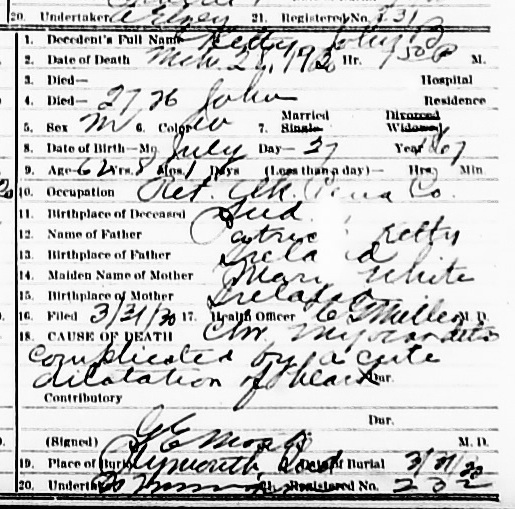 20. Undertaker 21. Registered No. 231
1. Decedent's Full Name Ketty, John P
2. Date of Death Mch. 28, 1930 Hr. 1 50 P M.
3. Died— Hospital
4. Died— 2726 John Residence
5. Sex M 6. Color W 7. Married Single Divorced Widowed
8. Date of Birth—Mo. July Day— 27 Year 1867
9. Age— 62 Yrs. 8 Mos. 1 Days (Less than a day)— Hrs. Min.
10. Occupation Ret. Clk. Penna Co.
11. Birthplace of Deceased Ind.
12. Name of Father Patric Ketty
13. Birthplace of Father Irela d
14. Maiden Name of Mother Mary White
15. Birthplace of Mother Ireland
16. Filed 3/31/30 17. Health Officer E Miller M. D.
18. CAUSE OF DEATH Chr. Myocarditis
complicated by acute
dilatation of heart Dur.
Contributory
Dur.
(Signed) G E M. D.
19. Place of Burial Plymouth Ind Date of Burial 3/31/30
20. Undertaker 21. Registered No. 232